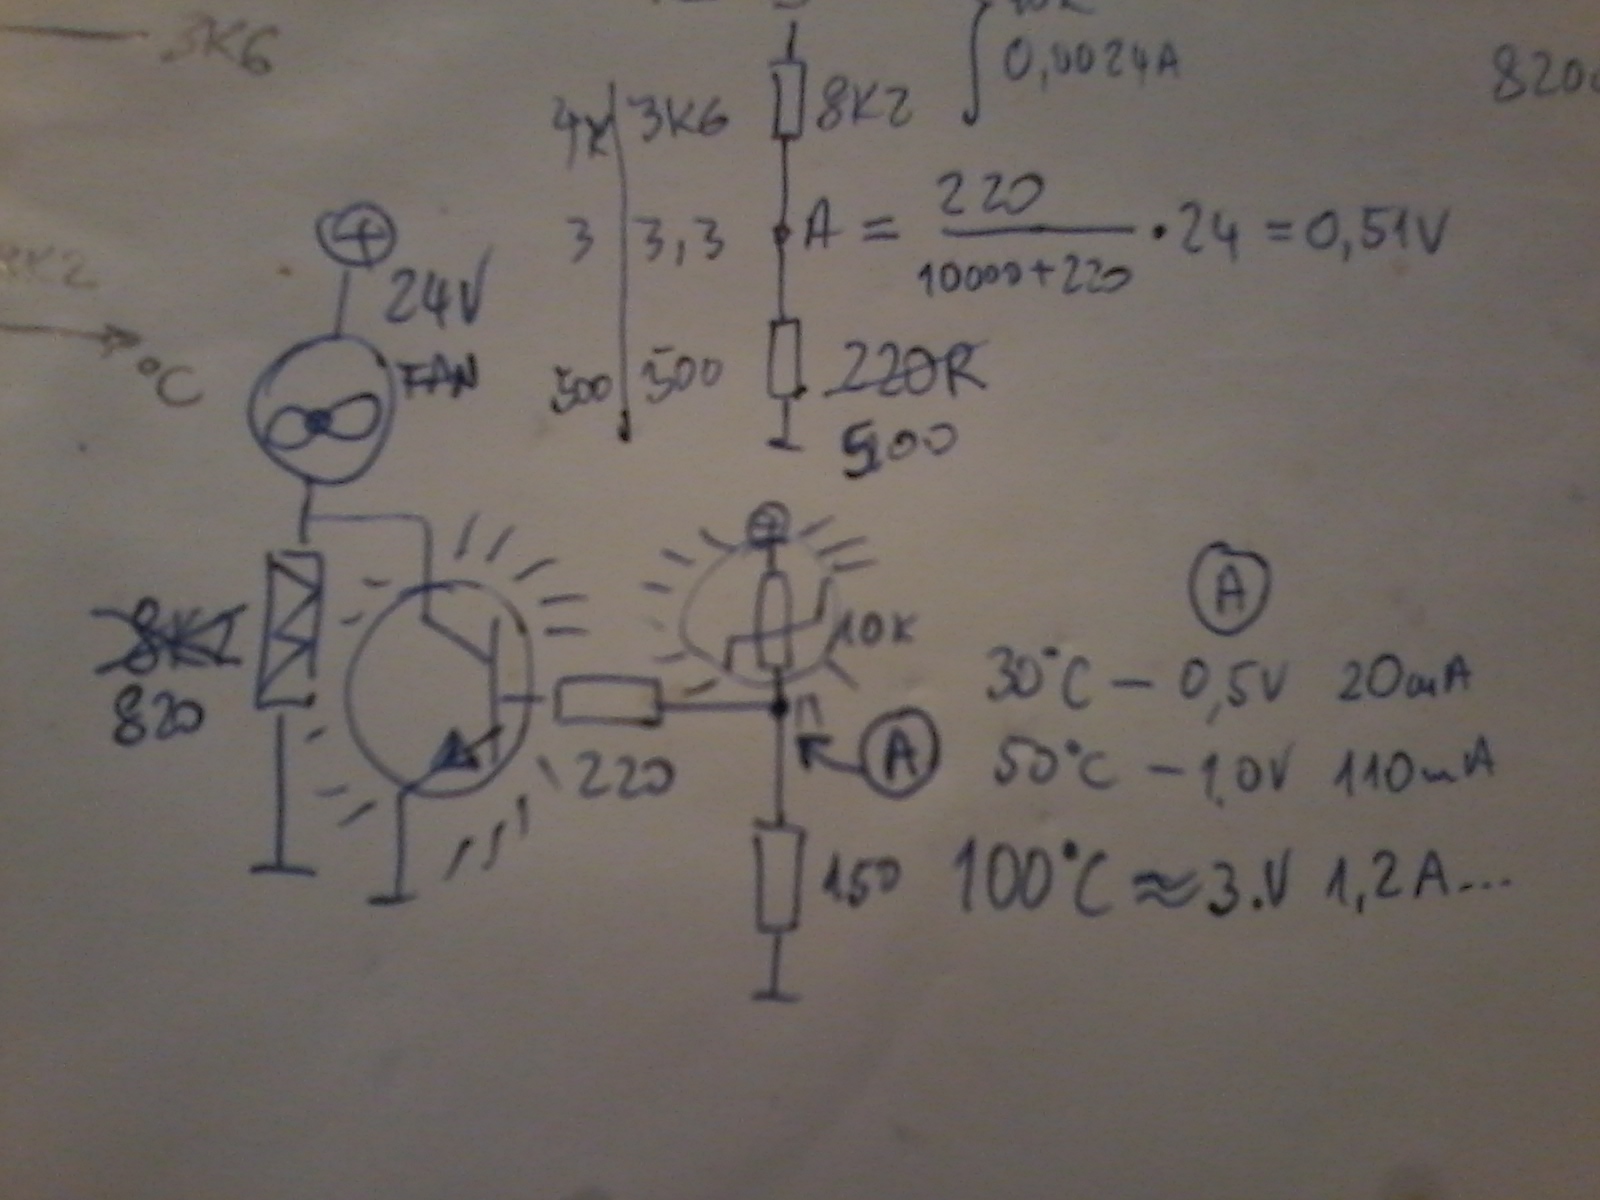 3K6
0,0024A
820
8K2
4K 3K6
3 3,3
A = 220 / 10000+220 · 24 = 0,51V
500 500
220R
500
+
24V
FAN
°C
+
10K
8K2
820
220
A
150
A
30°C – 0,5V 20mA
50°C – 1,0V 110mA
100°C ≈ 3.V 1,2A...